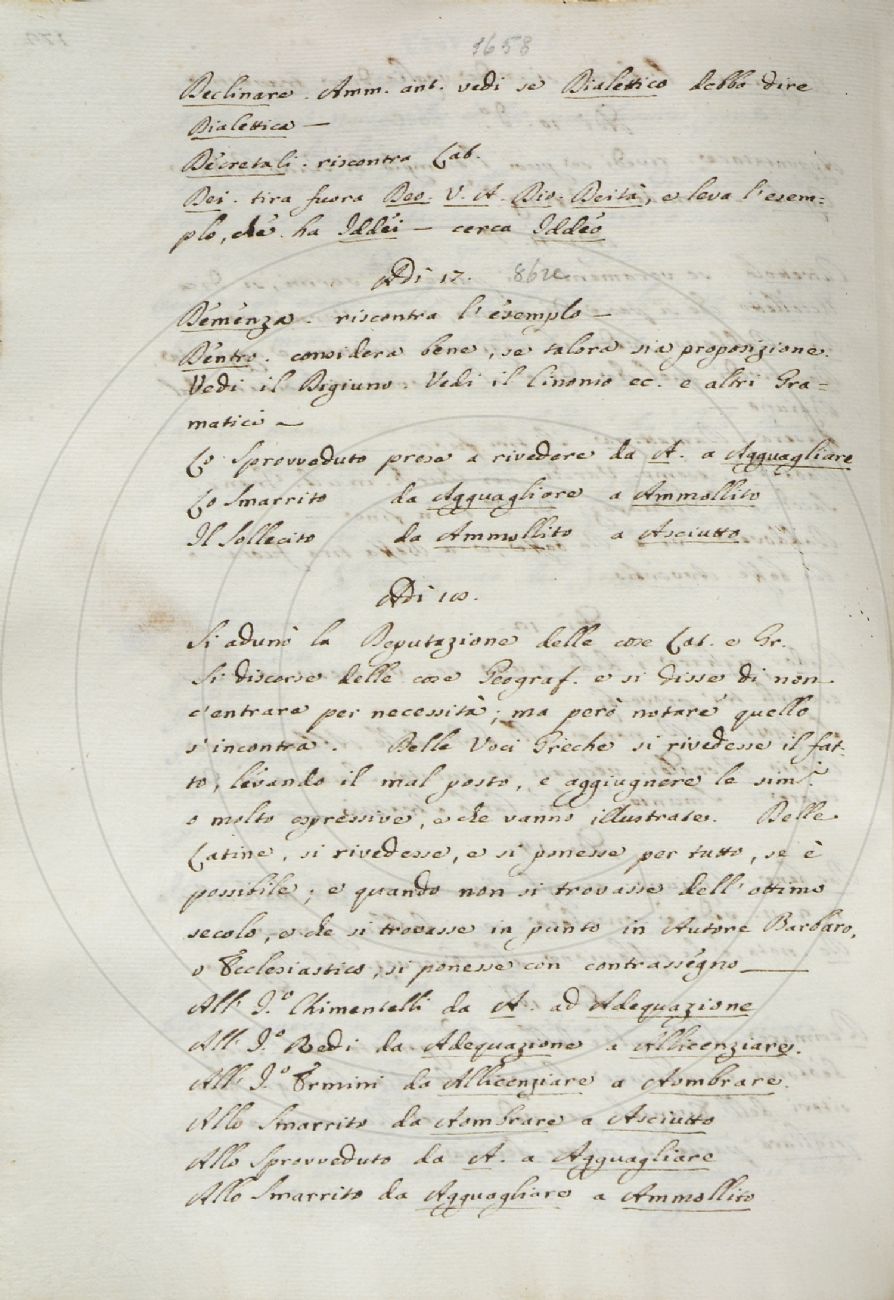 1658
Declinare. Amm. ant. vedi se Dialettico debba dire
Dialettica —
Decretali. riscontra Lab.
Dei. tira fuora Deo. V. A. Dio. Deità, e leva l'esem=
plo, che ha Iddèi — cerca Iddèo
Adì 17.
Demenza. riscontra l'esemplo —
Dentro. considera bene, se talora sia proposizione.
Vedi il Bigiuno. Vedi il Cinonio ec. e altri Gra=
matici —
Lo Sprovveduto prese a rivedere da A. a Agguagliare
Lo Smarrito da Agguagliare a Ammollito
Il Sollecito da Ammollito a Asciutto
Adì 18.
Si adunò la Deputazione delle cose Lat. e Gr.
Si discorse delle cose Geograf. e si disse di non
c'entrare per necessità; ma però notare quello
s'incontra. Delle Voci Greche si rivedesse il fat=
to, levando il mal posto, e aggiugnere le sim.
o molto espressive, e che vanno illustrate. Delle
Latine, si rivedesse, e si ponesse per tutto, se è
possibile; e quando non si trovasse dell'ottimo
secolo, e che si trovasse in punto in Autore Barbaro,
o Ecclesiastico, si ponesse con contrassegno —
All' I.º Chimentelli da A. ad Adequazione
All' I.º Redi da Adequazione a Allicenziare.
All' I.º Ermini da Allicenziare a Aombrare.
Allo Smarrito da Aombrare a Asciutto
Allo Sprovveduto da A. a Agguagliare
Allo Smarrito da Agguagliare a Ammollito